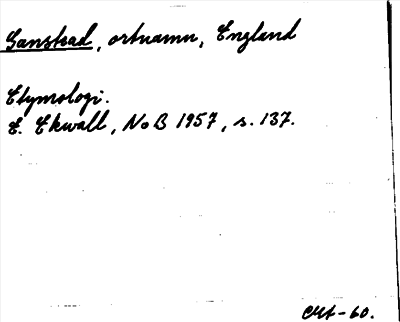 Ganstead, ortnamn, England
Etymologi.
E. Ekwall, NoB 1957, s. 137.
-60.